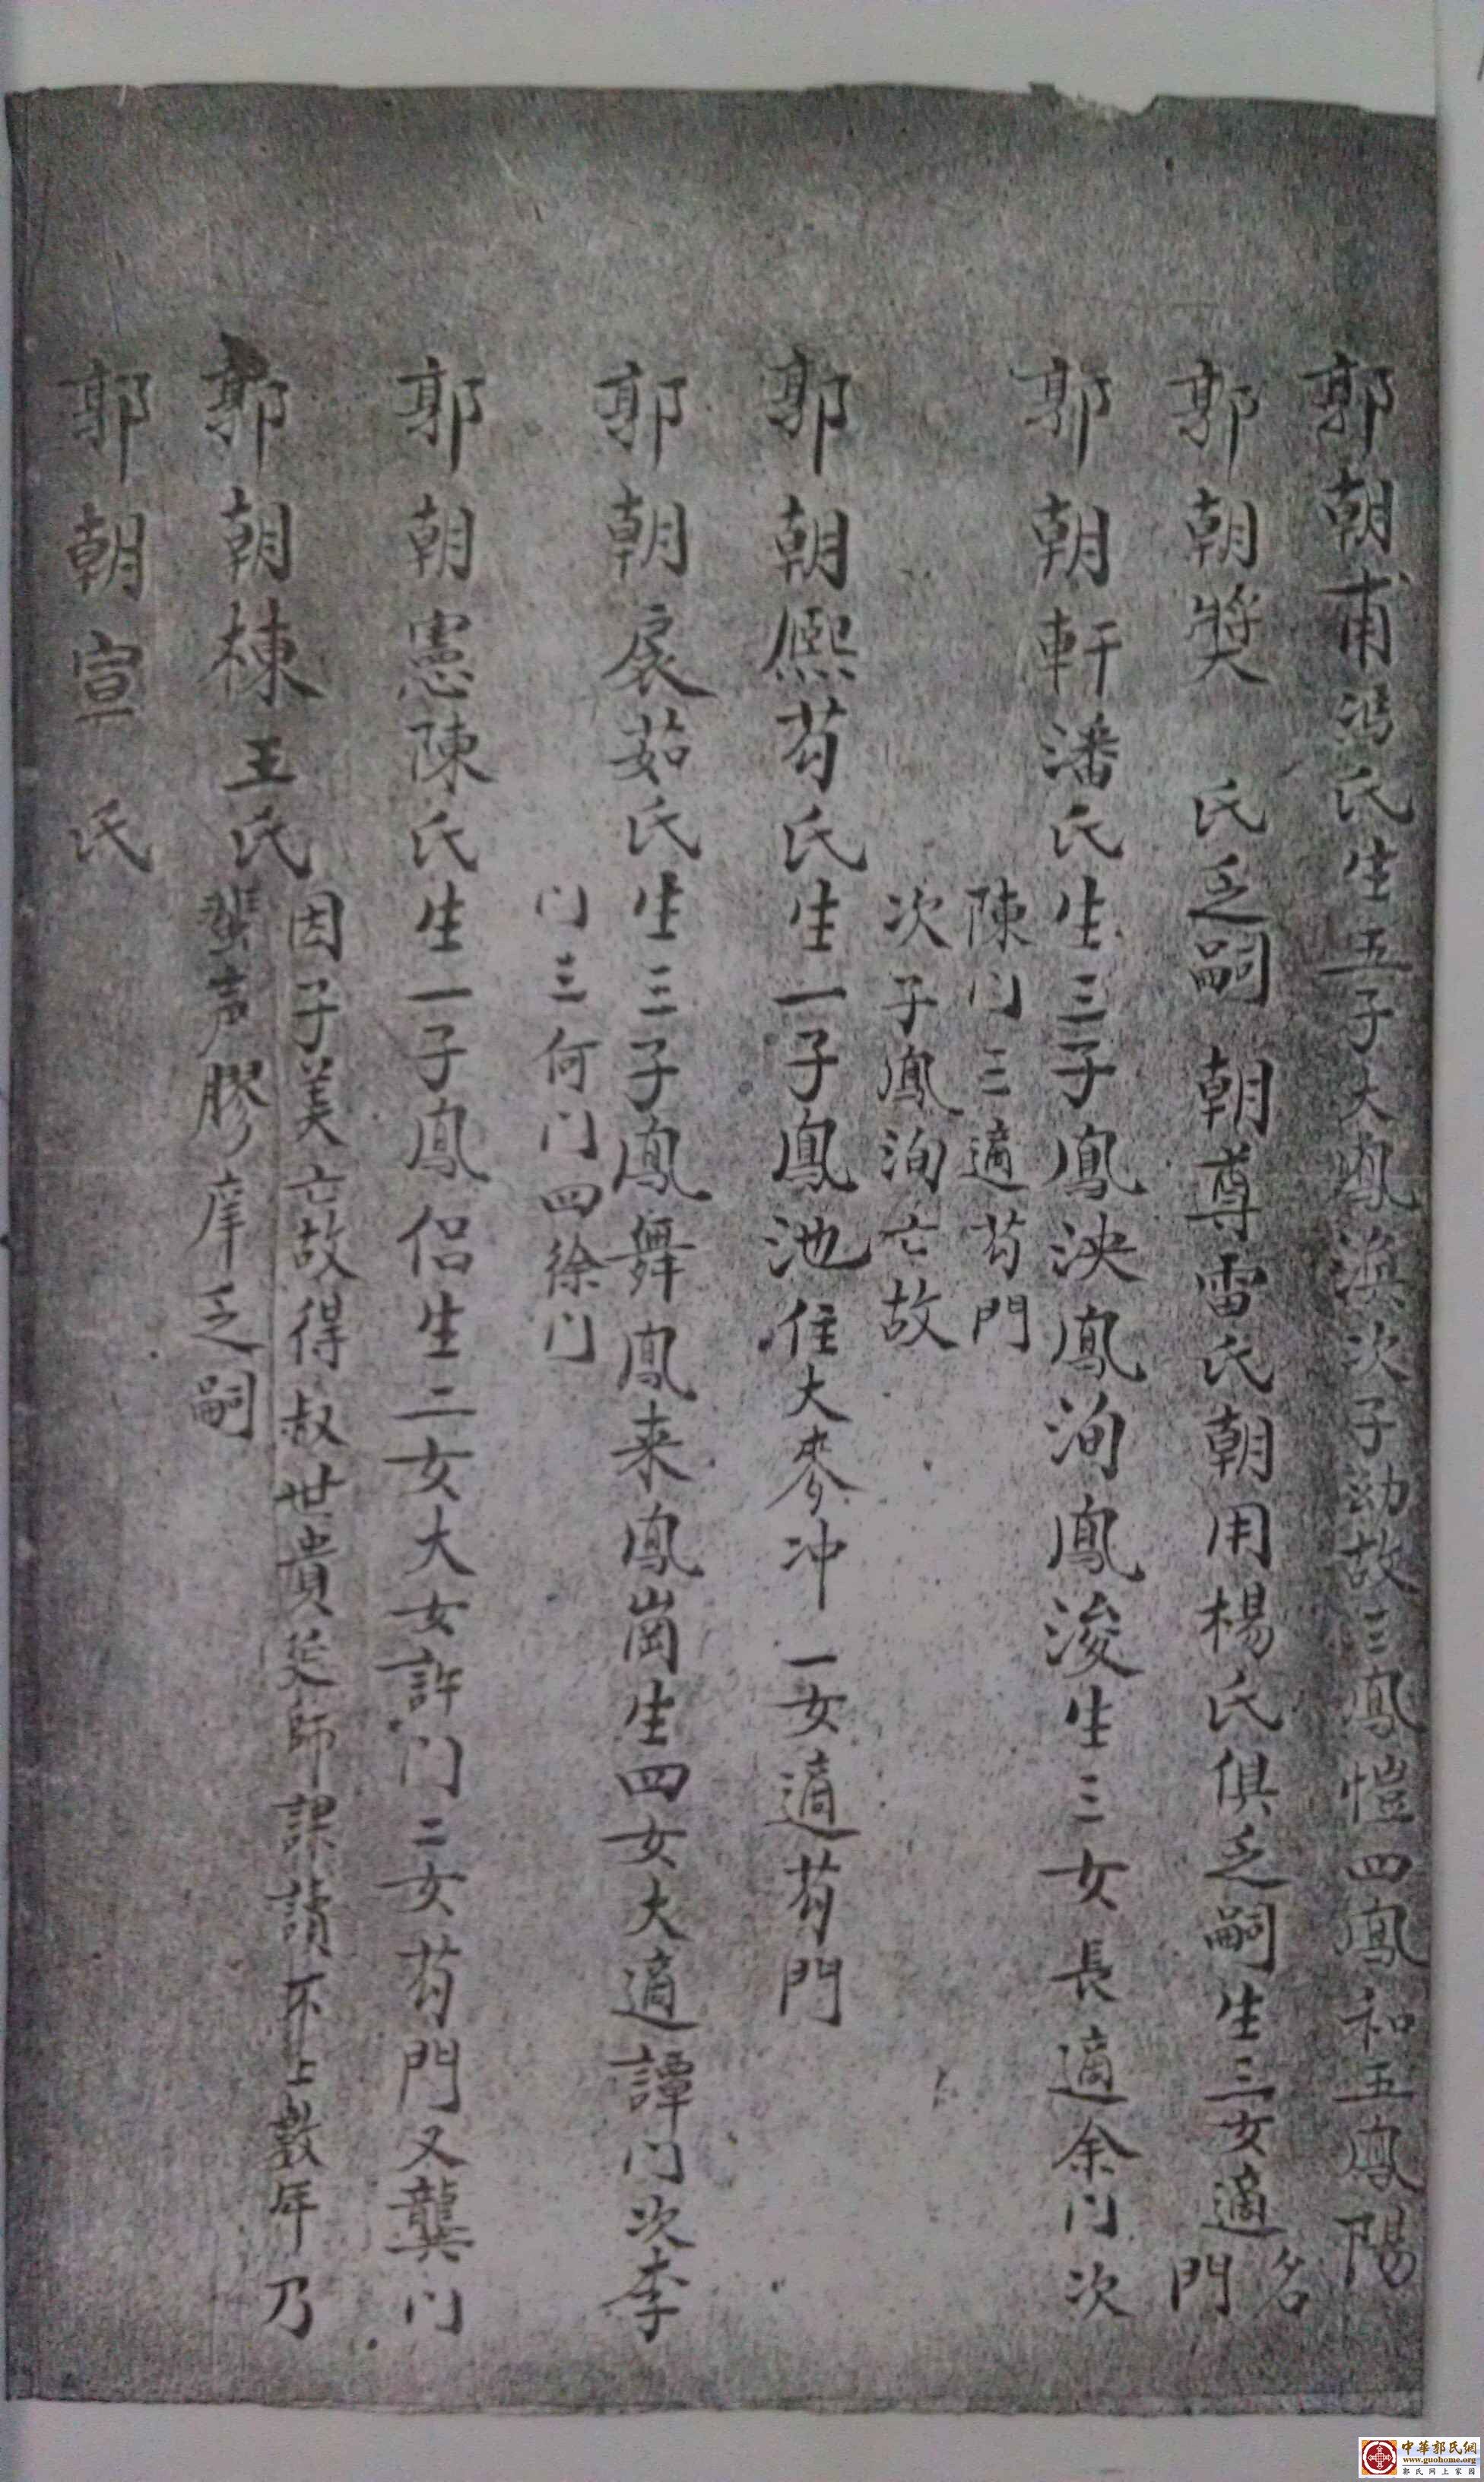 郭朝甫馮氏生五子大鳳滇次子幼故三鳳愷四鳳和五鳳陽
郭朝獎 氏乏嗣 朝尊雷氏朝用楊氏俱乏嗣生三女適名門
郭朝軒潘氏生三子鳳泱鳳洵鳳浚生三女長適余门次
陳门三適芶門
次子鳳洵亡故
郭朝熙芶氏生一子鳳池住大麥冲一女適芶門
郭朝扆茹氏生三子鳳舞鳳来鳳崗生四女大適譚门次李
门三何门四徐门
郭朝憲陳氏生一子鳳侣生二女大女許门二女芶門又龔门
郭朝棟王氏
因子美亡故得叔世貴延師課讀不上数年乃
蜚声膠庠乏嗣
郭朝宣 氏
中華郭氏網
www.guohome.org
郭氏网上家园